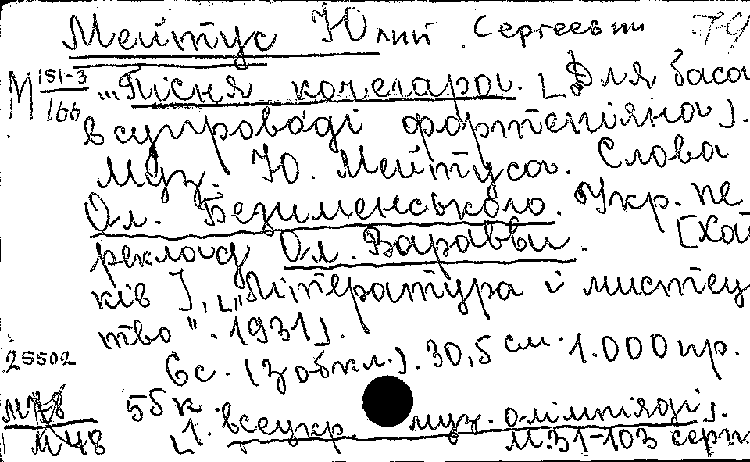 Мейтус Юлий Сергеевич 79
М 151-3/166 "Пісня кочегара. [Для баса
в супроводі фортепіяна].
Муз. Ю. Мейтуса. Слова
Ол. Безименського. Укр. пе
реклад Ол. Варавви. [Хар
ків], "Література і мистец
тво". 1931].
25502 6 с. (З обкл.). 30,5 см. 1.000 пр.
55 к.
М48 [1. всеукр. муз. олімпіяді].
М.31-103 серп